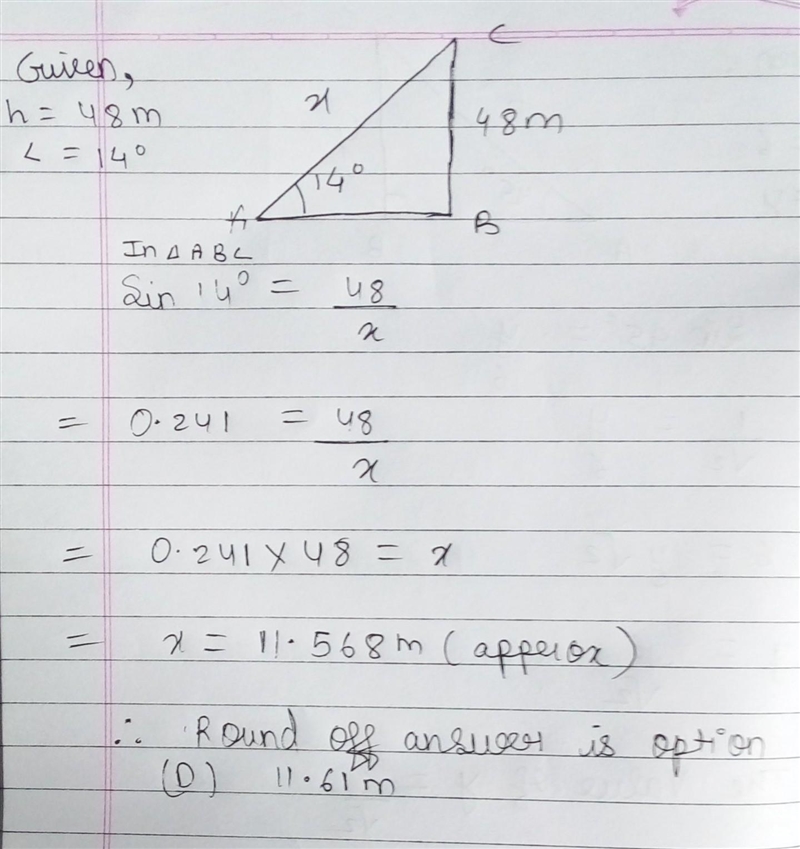 Given,
h = 48m
∠ = 14°
C
x
48m
14°
A
B
In △ ABC
Sin 14° = 48/x
= 0.241 = 48/x
= 0.241 × 48 = x
= x = 11.568m (approx)
∴ Round off answer is option
(D) 11.61m